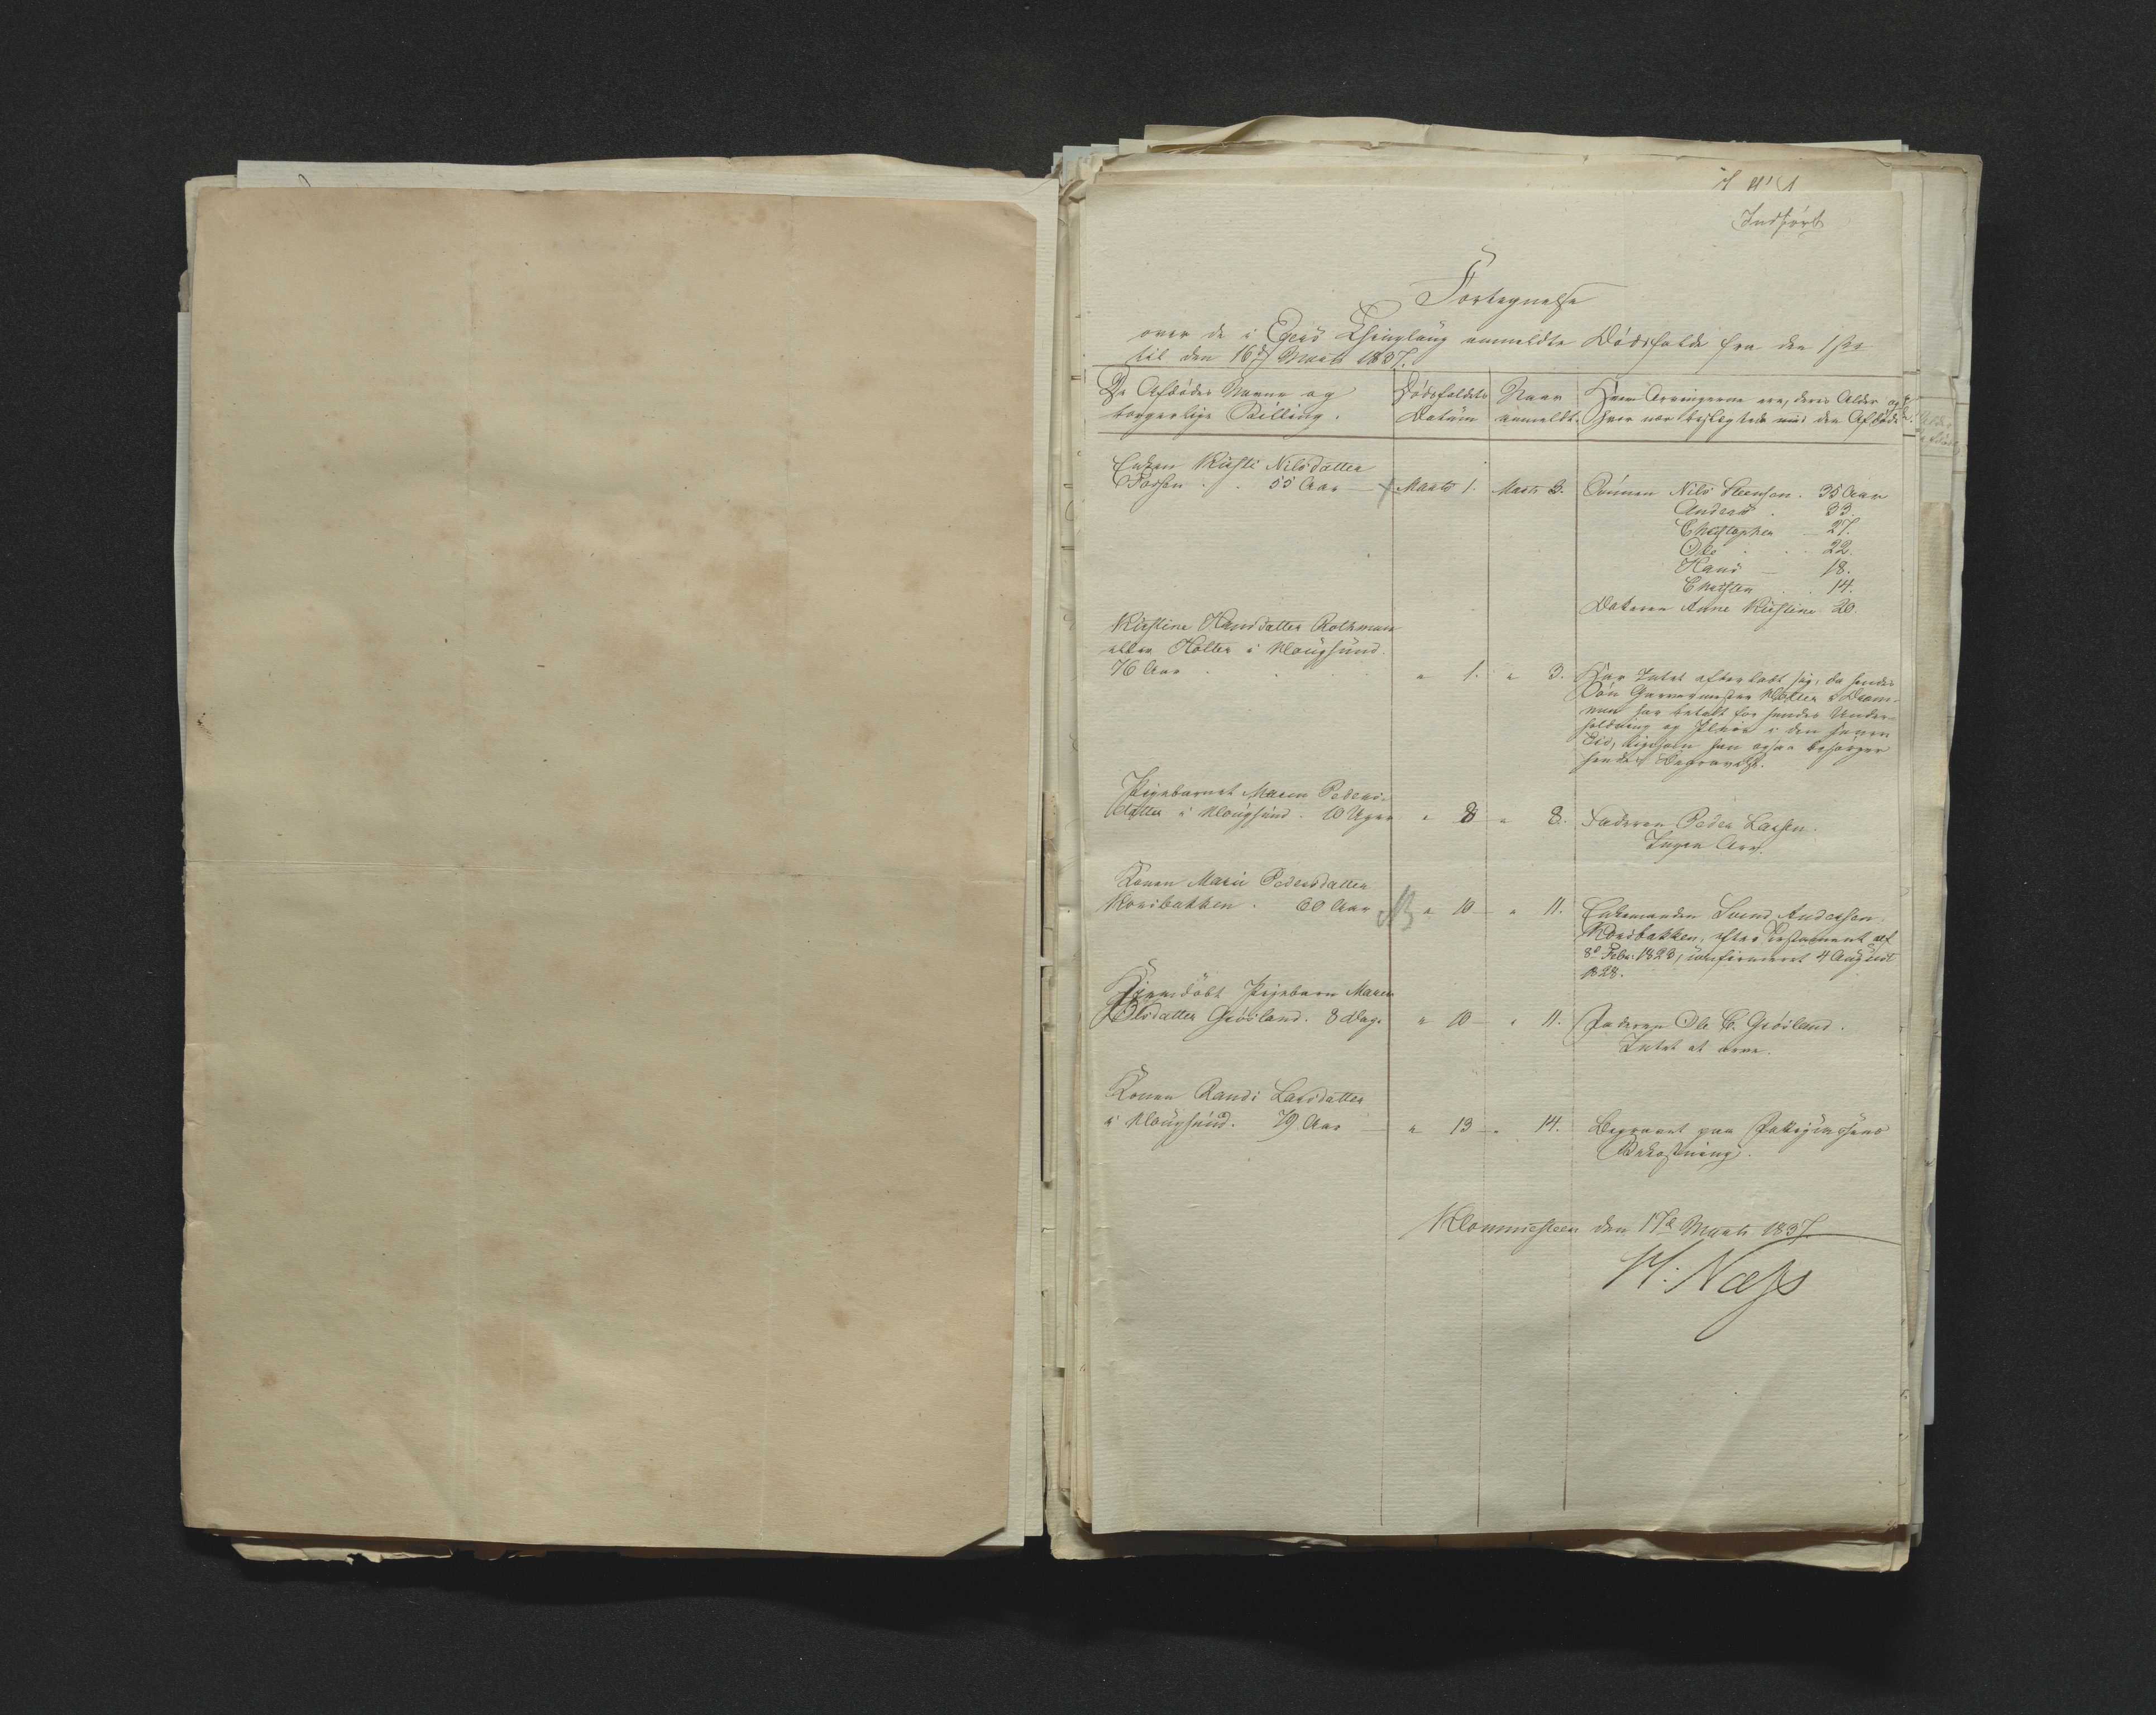 Indført
Fortegnelse
over de i Egers Thinglaug anmeldte Dødsfalde fra den 1ste
til den 16d Marts 1837.
De Afdødes Navne og
borgerlige Stilling.
Dødsfaldets
Datum
Naar
anmeldt.
Hvem Arvingerne ere, deres Alder og
hvor nær beslægtede med den Afdøde
Enken Kirsti Nilsdatter
Fossen . . 55 Aar — Marts 1. Marts 3. Sønnen Nils Steenson . 35 Aar
Anders . 33.
Christopher — 27.
Ole . . 22.
Hans — 18.
Christen . . 14.
Datteren Anne Kirstine 20.
Kirstine Hansdatter Rothman
eller Holter i Hougsund.
76 Aar . . . " 1. " 3. Har Intet efterladt sig, da hendes
Søn Garvermester Holter i Dram-
men har betalt for hendes Under-
holdning og Pleie i den senere
Tid, ligesom han ogsaa besørger
hendes Begravelse.
Pigebarnet Maren Peders-
datter i Hougsund. 10 Uger " 8 " 8. Faderen Peder Larsen.
Ingen Arv.
Konen Marie Pedersdatter
Korsbakken . 60 Aar " 10 — " 11. Enkemanden Svend Andersen
Korsbakken, efter Testament af
8d Febr: 1823, confirmeret 4 August
1828.
Hjemdøbt Pigebarn Maren
Olsdatter Grøsland. 8 Dage " 10 — " 11. Faderen Ole C. Grøsland.
Intet at arve.
Konen Randi Larsdatter
i Hougsund. 79 Aar — " 13 — " 14. Begravet paa Fattigcassens
Bekostning.
Klommesteen den 17d Marts 1837.
H: Næss